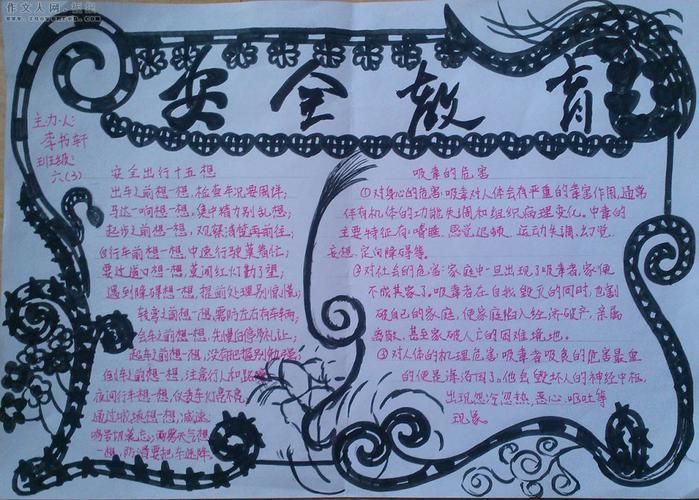 作文人网
安全教育
主力人:
李书轩
班级:
六(3)
安全出行十五想
出车之前想一想,检查车况要周详;
马达一响想一想,集中精力别乱想;
起步之前想一想,观察清楚再前往;
自行车前想一想,中速行驶莫着忙;
要过道口想一想,莫闯红灯勤了望;
遇到障碍想一想,提前处理别惊慌;
转弯之前想一想,需防左右有车辆;
会车之前想一想,先慢后停多礼让;
超车之前想一想,没有把握别勉强;
倒车之前想一想,注意行人和
夜间行车想一想,仪表车灯
通过城镇想一想,减速
雨雾天气想
一想,防滑要把车速降。
吸毒的危害
①对身心的危害:吸毒对人体会有严重的毒害作用,通常
伴有机体的功能失调和组织病理变化。中毒的
主要特征有:嗜睡、感觉迟钝、运动失调、幻觉、
妄想、定向障碍等。
②对社会的危害:家庭中一旦出现了吸毒者,家便
不成其家了。吸毒者在自我毁灭的同时,也害
破自己的家庭,使家庭陷入经济破产、亲属
离散、甚至家破人亡的困难境地。
③对人体的机理危害:吸毒者吸食的危害最重
的便是海洛因了。他会毁坏人的神经中枢,
出现忽冷忽热、恶心、呕吐等
现象